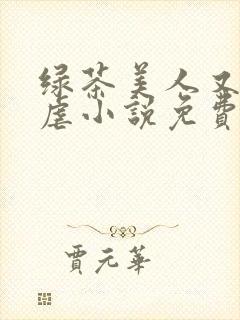 绿茶美人又
虐小説免費
賈元華